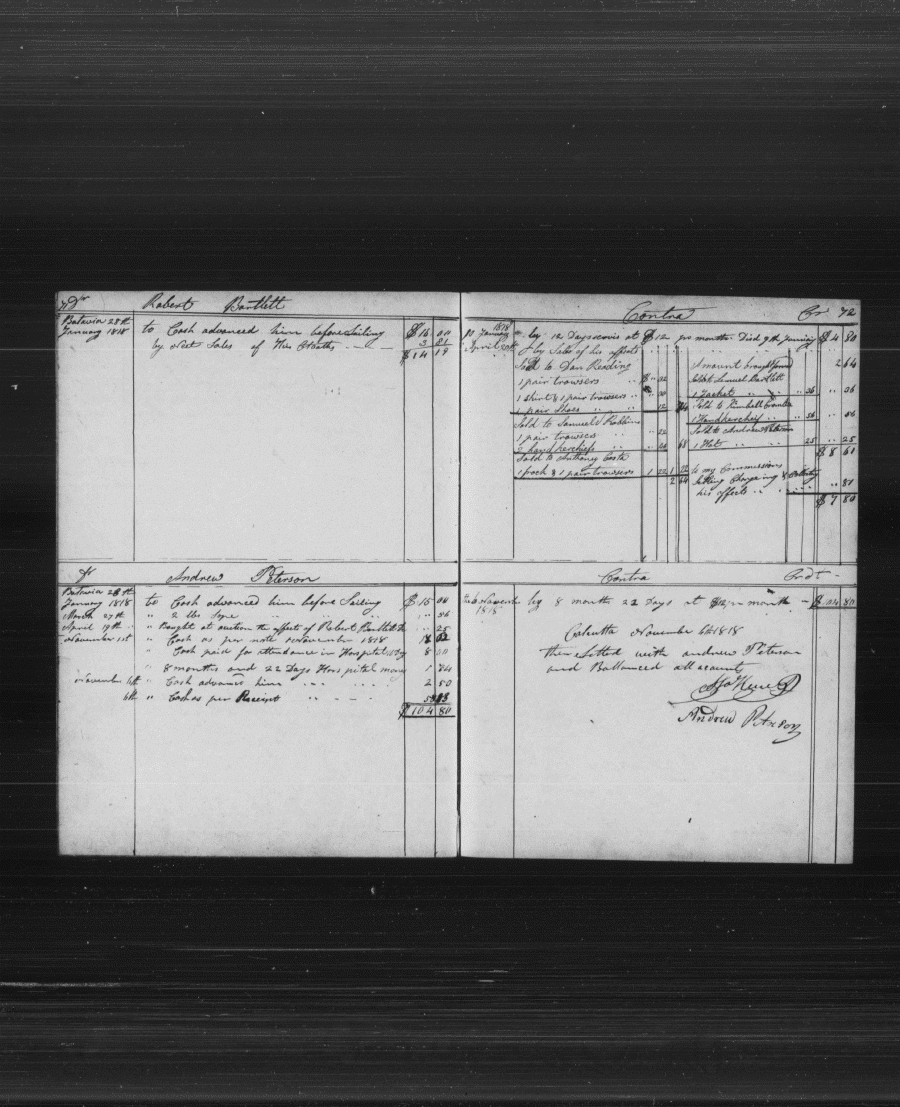 Dr Robert Bartlett
Batavia 28th
January 1818 to Cash advanced him before Sailing $ 15 00
by Nett Sales of His 3 81
$ 14 19
Contra Cr 72
1818
January by 12 Days at $12 pr month Died 9th January $ 4 80
April by Sales of his effects
Sold to Dan Reading
1 pair trowsers
1 Shirt & 1 pair trowsers
1 pair Shoes 12
Sold to Samuel Robbins
1 pair trowsers 22
2 handkerchiefs 68
Sold to Anthony Costa
1 frock & 1 pair trowsers 1 22 1 22
2 64
Amount brought forwd 2 64
Sold Samuel Bartlett
1 Jacket 36 36
Sold to Kimball
1 Handkercheif 56 56
Sold to Andrew Peterson
1 Hat 25 25
$ 8 61
to my Commissions
Selling Chargeing &
his effects 81
$ 7 80
Dr Andrew Peterson
Batavia 28th
January 1818 to Cash advanced him before Sailing $ 15 00
March 27th " 2 lbs 56
April 19th " Bought at auction the effects of Robert Bartlett 25
November 1st " Cash as per note November 1818
" Cash paid for attendance in Hospital 8 20
" 8 months and 22 Days Hospital money 1 84
November 4th " Cash advanced him 2 50
6th " Cash as per Receipt
$ 104 80
Contra Crdt
November 1818 by 8 month 22 Days at $12 pr month $ 104 80
Calcutta November 6th 1818
then Settled with andrew Peterson
and Ballanced all acount
Andrew Peterson